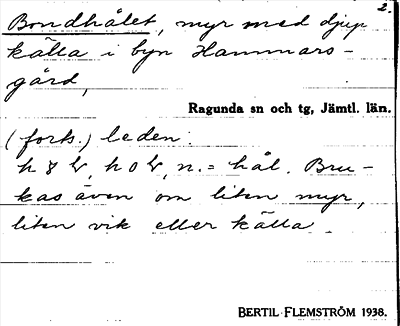 2.
Bondhålet, myr med djup
källa i byn Hammars-
gård,
Ragunda sn och tg, Jämtl. län.
(forts.) leden.
n. = hål. Bru-
kas även om liten myr,
liten vik eller källa.
BERTIL FLEMSTRÖM 1938.